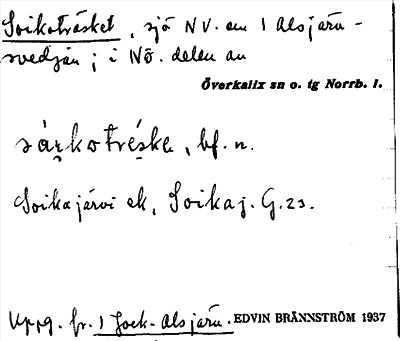 Soikoträsket, sjö NV. om 1 Alsjärv-
svedjan; i NÖ. delen av
Överkalix sn o. tg Norrb. l.
sårkotréske, bf. n.
Soikajärvi ek, Soikaj. G.23.
Uppg. fr. 1 Jock-Alsjärv. EDVIN BRÄNNSTRÖM 1937